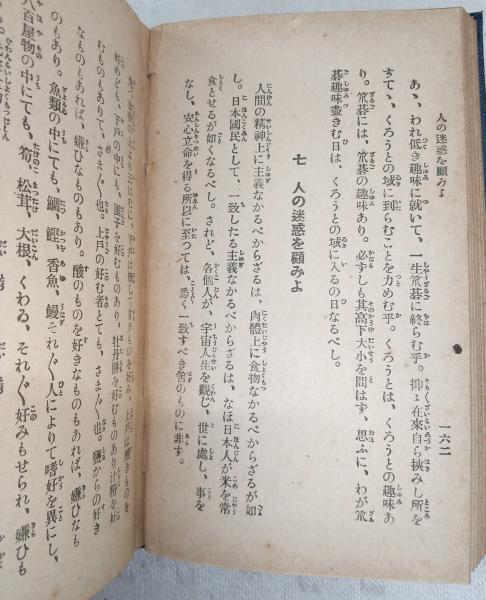 人の迷惑を顧みよ
一六二
あゝ、われ低き趣味に就いて、一生笊碁に終らむ乎。抑〻在來自ら挾みし所を
すてゝ、くろうとの域に到らむことを力めむ乎。くろうとは、くろうとの趣味あ
り。笊碁には、笊碁の趣味あり。必ずしも其高下大小を問はず、思ふに、わが笊
碁趣味盡きむ日は、くろうとの域に入るの日なるべし。
七 人の迷惑を顧みよ
人間の精神上に主義なかるべからざるは、肉體上に食物なかるべからざるが如
し。日本國民として、一致したる主義なかるべからざるは、なほ日本人が米を常
食とせるが如くなるべし。されど、各個人が、宇宙人生を觀じ、世に處し、事を
なし、安心立命を得る所以に至つては、悉く一致すべき筈のものに非ず。
好めども、下戸の中にも、團子を好むものあり、牡丹餠を好むものあり、汁粉を好
むものもありて、さま〴〵也。上戸の好む者とても、さま〴〵也。鹽からの好き
なものもあれば、嫌ひなものもあり。酸のものを好きなものもあれば、嫌ひなも
のもあり。魚類の中にても、鯛、鰹、香魚、鰻それ〴〵人によりて嗜好を異にし、
八百屋物の中にても、筍、松茸、大根、くわゐ、それ〴〵好みもせられ、嫌ひも